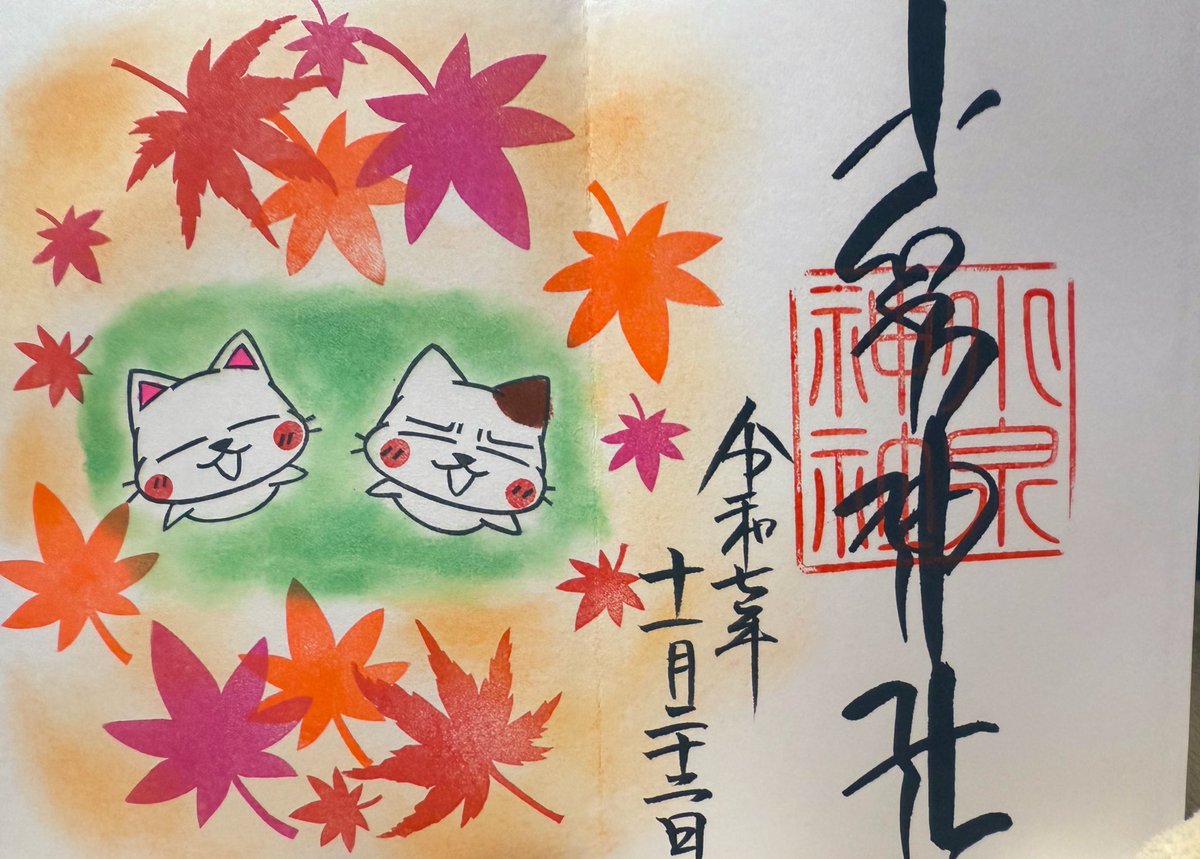 小泉神社
小泉
神社
令和七年
十一月二十二日